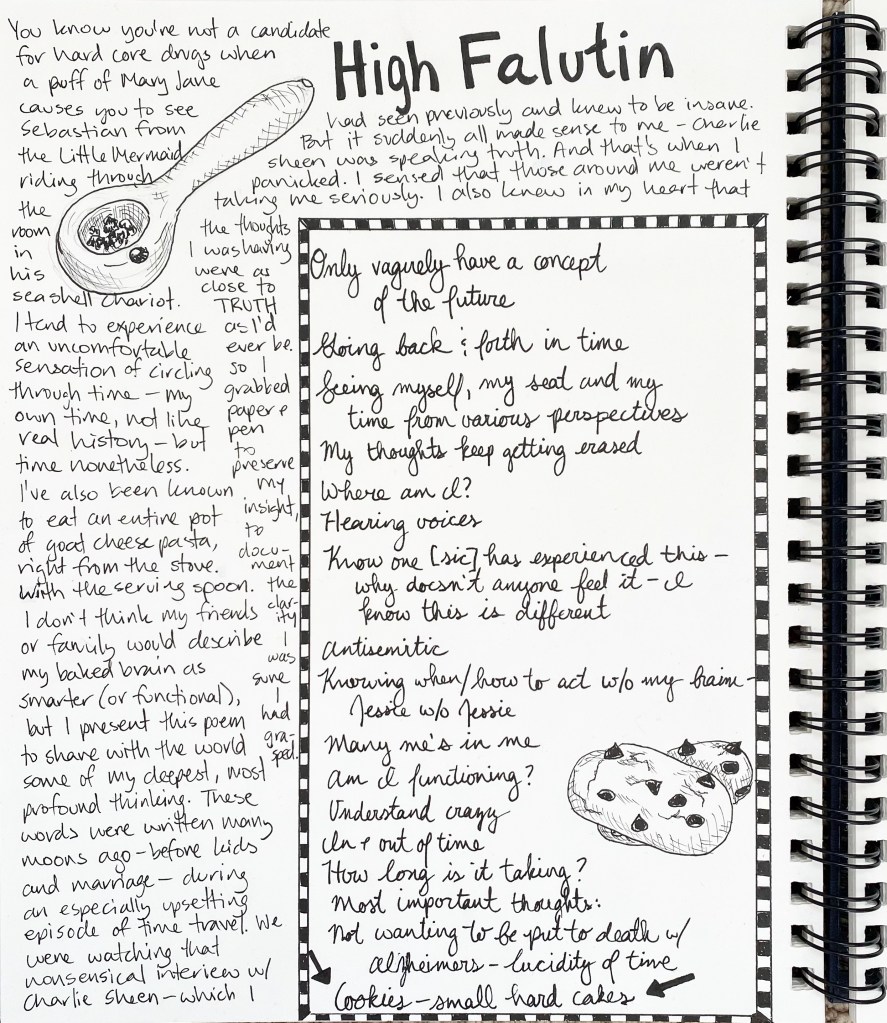 High Falutin
You know you're not a candidate
for hard core drugs when
a puff of Mary Jane
causes you to see
Sebastian from
the Little Mermaid
riding through
the
room
in
his
seashell chariot.
I tend to experience
an uncomfortable
sensation of circling
through time – my
own time, not like
real history – but
time nonetheless.
I've also been known
to eat an entire pot
of goat cheese pasta,
right from the stove.
With the serving spoon.
I don't think my friends
or family would describe
my baked brain as
smarter (or functional),
but I present this poem
to share with the world
some of my deepest, most
profound thinking. These
words were written many
moons ago – before kids
and marriage – during
an especially upsetting
episode of time travel. We
were watching that
nonsensical interview w/
Charlie Sheen – which I
had seen previously and knew to be insane.
But it suddenly all made sense to me – Charlie
Sheen was speaking truth. And that's when I
panicked. I sensed that those around me weren't
taking me seriously. I also knew in my heart that
the thoughts
I was having
were as
close to
TRUTH
as I'd
ever be.
So I
grabbed
paper &
pen
to
preserve
my
insight,
to
docu-
ment
the
clar-
ity
I
was
sure
I
had
gra-
sped.
Only vaguely have a concept
of the future
Going back & forth in time
Seeing myself, my seat and my
time from various perspectives
My thoughts keep getting erased
Where am I?
Hearing voices
Know one [sic] has experienced this –
why doesn't anyone feel it – I
know this is different
Antisemitic
Knowing when/how to act w/o my braine –
Jessie w/o Jessie
Many me's in me
Am I functioning?
Understand crazy
In & out of time
How long is it taking?
Most important thoughts:
Not wanting to be put to death w/
alzheimers – lucidity of time
Cookies – small hard cakes